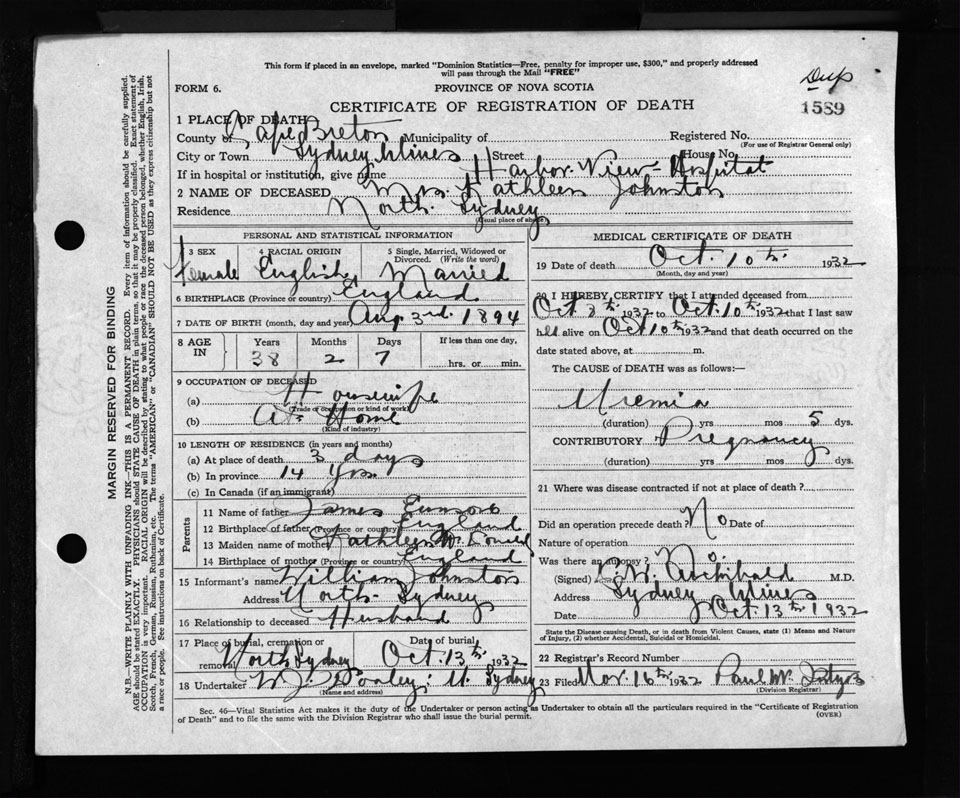 This form if placed in an envelope, marked "Dominion Statistics—Free, penalty for improper use, $300," and properly addressed
will pass through the Mail "FREE"
Dup
1589
FORM 6.
PROVINCE OF NOVA SCOTIA
CERTIFICATE OF REGISTRATION OF DEATH
1 PLACE OF DEATH
County of Cape Breton Municipality of Registered No.
(For use of Registrar General only)
City or Town Sydney Mines Street House No.
If in hospital or institution, give name Harbor View Hospital
2 NAME OF DECEASED Mrs. Kathleen Johnston
Residence North Sydney
(Usual place of abode)
PERSONAL AND STATISTICAL INFORMATION
3 SEX 4 RACIAL ORIGIN 5 Single, Married, Widowed or
Divorced. (Write the word)
Female English Married
6 BIRTHPLACE (Province or country) England
7 DATE OF BIRTH (month, day and year) Aug 3rd. 1894
8 AGE IN Years Months Days If less than one day,
38 2 7 hrs. or min.
9 OCCUPATION OF DECEASED
(a) Housewife
(Trade or occupation or kind of work)
(b) At Home
(Kind of industry)
10 LENGTH OF RESIDENCE (in years and months)
(a) At place of death 3 days
(b) In province 14 yrs.
(c) In Canada (if an immigrant)
Parents
11 Name of father James
12 Birthplace of father (Province or country) England
13 Maiden name of mother Kathleen
14 Birthplace of mother (Province or country) England
15 Informant's name William Johnston
Address North Sydney
16 Relationship to deceased Husband
17 Place of burial, cremation or removal North Sydney Date of burial Oct. 13th. 1932
18 Undertaker W. J. Dooley, N. Sydney
(Name and address)
MEDICAL CERTIFICATE OF DEATH
19 Date of death Oct. 10th. 1932
(Month, day and year)
20 I HEREBY CERTIFY that I attended deceased from
Oct 8th. 1932 to Oct. 10th. 1932 that I last saw
h alive on Oct 10th 1932 and that death occurred on the
date stated above, at m.
The CAUSE of DEATH was as follows:—
Uremia
(duration) yrs mos 5 dys.
CONTRIBUTORY Pregnancy
(duration) yrs mos dys.
21 Where was disease contracted if not at place of death?
Did an operation precede death? No Date of
Nature of operation
Was there an autopsy? No.
(Signed) Archibald M.D.
Address Sydney Mines
Date Oct 13th. 1932
State the Disease causing Death, or in death from Violent Causes, state (1) Means and Nature
of Injury, (2) whether Accidental, Suicidal or Homicidal.
22 Registrar's Record Number
23 Filed Nov. 16th 1932 Paul M.
(Division Registrar)
Sec. 46—Vital Statistics Act makes it the duty of the Undertaker or person acting as Undertaker to obtain all the particulars required in the "Certificate of Registration
of Death" and to file the same with the Division Registrar who shall issue the burial permit.
(OVER)
MARGIN RESERVED FOR BINDING
N.B.—WRITE PLAINLY WITH UNFADING INK—THIS IS A PERMANENT RECORD. Every item of information should be carefully supplied.
AGE should be stated EXACTLY. PHYSICIANS should STATE CAUSE OF DEATH in plain terms, so that it may be properly classified. Exact statement of
OCCUPATION is very important. RACIAL ORIGIN will be described by stating to what people or race the deceased person belonged, whether English, Irish,
Scotch, French, German, Russian, Ruthenian, etc. The terms "AMERICAN" or "CANADIAN" SHOULD NOT BE USED as they express citizenship but not
a race or people. See instructions on back of Certificate.